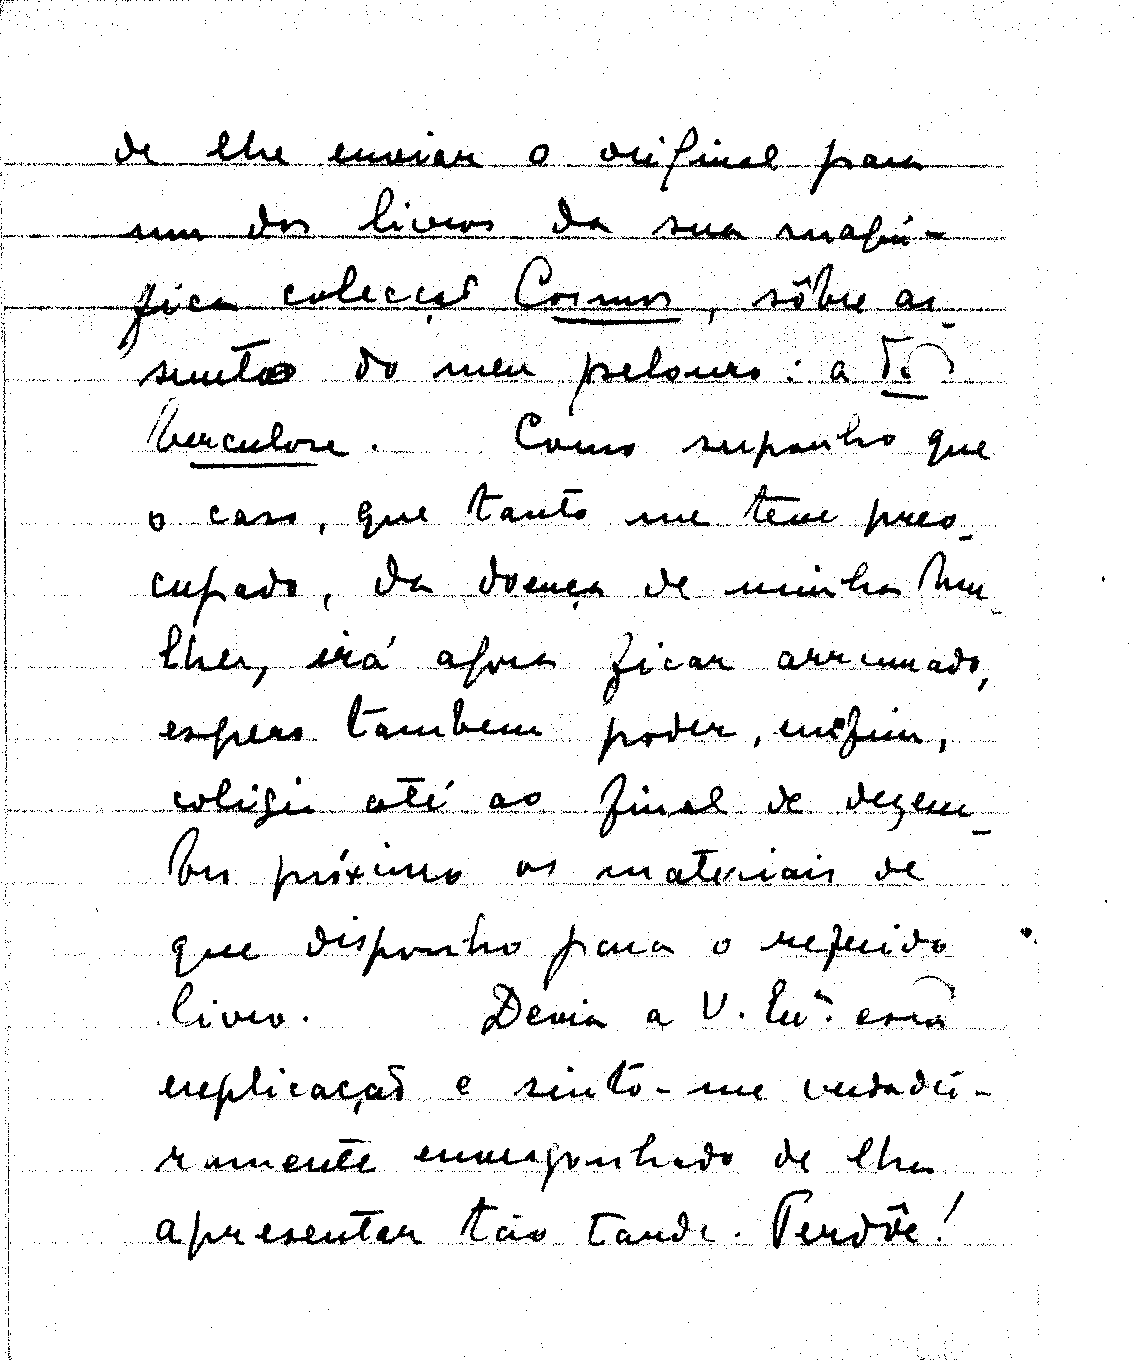 de lhe enviar o original para
um dos livros da sua magní-
fica colecção Cosmos, sôbre as-
suntos do meu pelouro: a Tu-
berculose. Como suponho que
o caso, que tanto me teve preo-
cupado, da doença de minha mu-
lher, irá agora ficar arrumado,
espero tambem poder, enfim,
coligir até ao final de dezem-
bro próximo os materiais de
que disponho para o referido
livro. Devia a V. Exª. essa
explicação e sinto-me verdadei-
ramente envergonhado de lha
apresentar tão tarde. Perdôe!